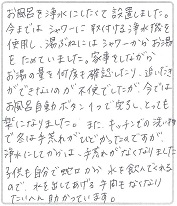 お風呂を浄水にしたくて設置しました。
今まではシャワーに取り付ける浄水器を
使用し、湯ぶねにはシャワーからお湯
をためていました。家事をしながら
お湯の量を何度も確認したり、追いだき
ができないのが不便でしたが、今では
お風呂自動ボタン1つで完了し、とっても
楽になりました。また、キッチンでの洗い物
で冬は手荒れがひどかったのですが、
浄水にしてからは、手荒れがなくなりました
子供も自分で蛇口から水を飲んでくれる
ので、水を出してあげる手間もなくなり
たいへん助かっています。